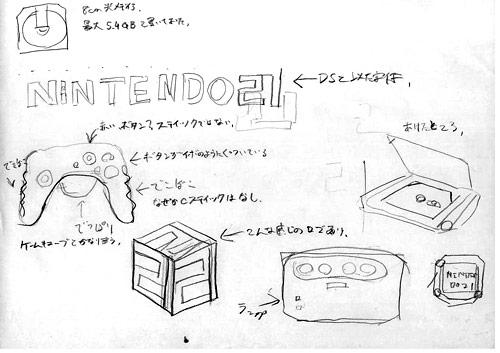 8cm光ディスク。
最大5.4GBと書いてました。
NINTENDO21
←DSと似た字体。
赤いボタン?スティックではない。
でこぼこ
←ボタンがイボのようにくっついている
←でこぼこ
なぜかCスティックはなし。
でっぱり
ゲームキューブとかなり違う。
←こんな感じのロゴあり。
ランプ
NINTEN
DO21